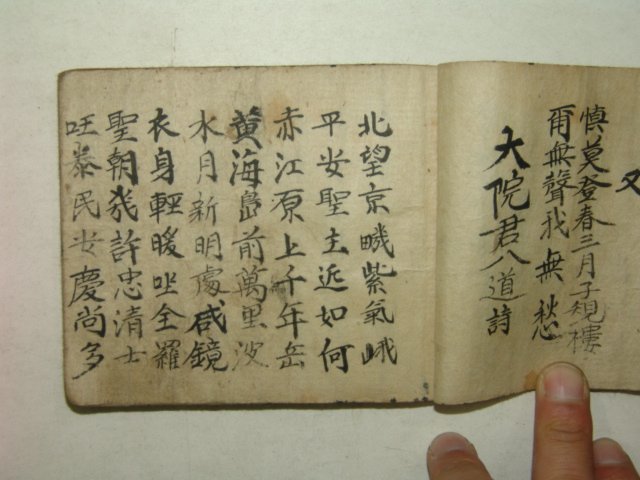 又
慎莫登春三月子規樓
爾無聲我無愁
大院君八道詩
北望京畿紫氣峨
平安聖主近如何
赤江原上千年岳
黃海島前萬里波
水月新明處咸鏡
衣身輕暖坐全羅
聖朝幾許忠清士
泰民安慶尚多